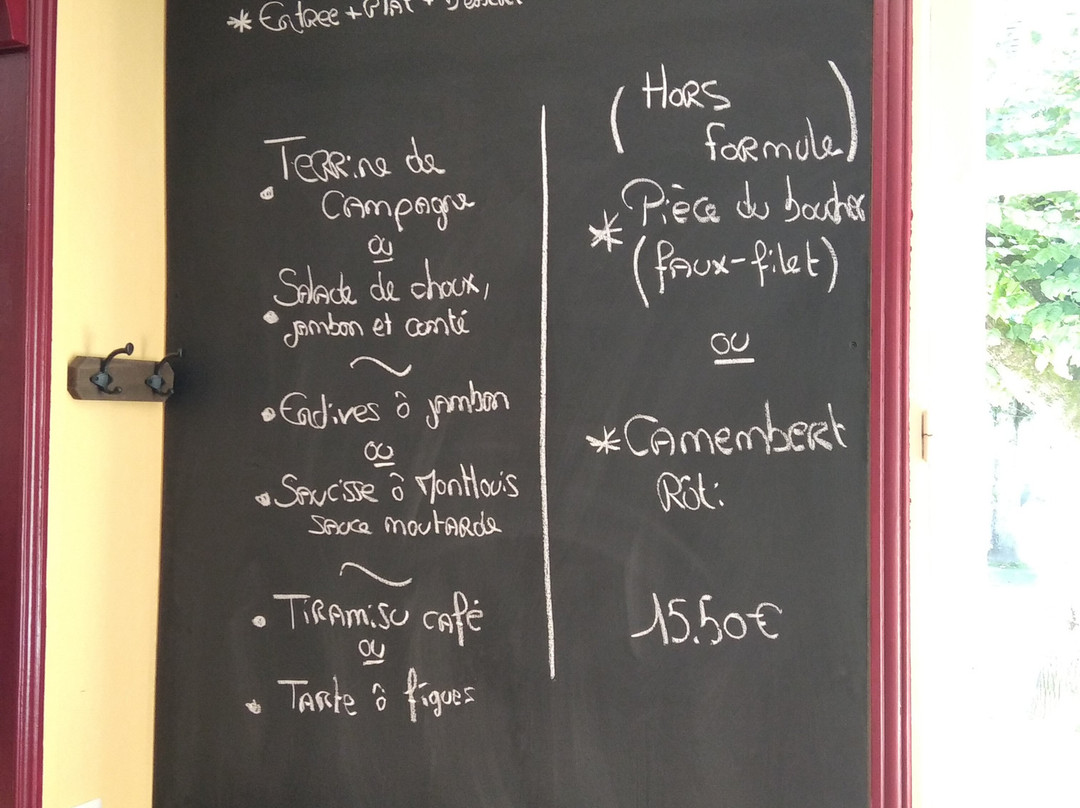 * Entree + Plat + Dessert
• Terrine de
Campagne
ou
Salade de choux,
• jambon et comté
~
• Endives ô jambon
ou
• Saucisse ô Montlouis
sauce moutarde
~
• Tiramisu café
ou
• Tarte ô figues
(Hors
formule)
* Pièce du boucher
(faux-filet)
ou
* Camembert
Rôti
15.50€